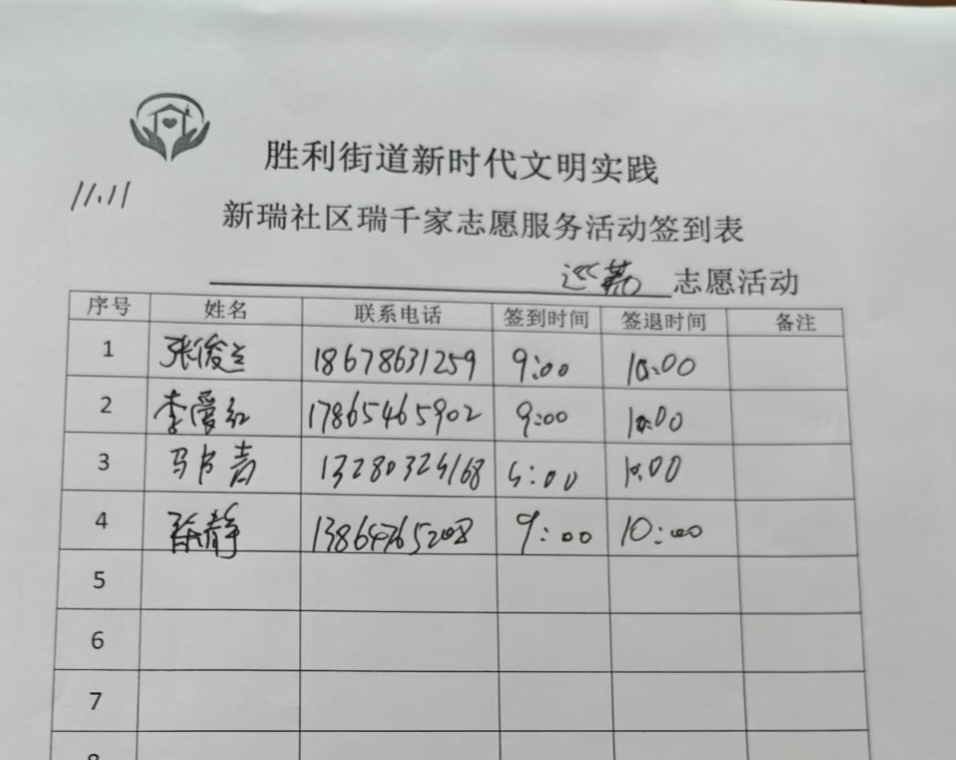 胜利街道新时代文明实践
11.11
新瑞社区瑞千家志愿服务活动签到表
志愿活动
序号 姓名 联系电话 签到时间 签退时间 备注
1 张俊兰 18678631259 9:00 10:00
2 李爱红 17865465902 9:00 10:00
3 9:00 10:00
4 静 9:00 10:00
5
6
7
8